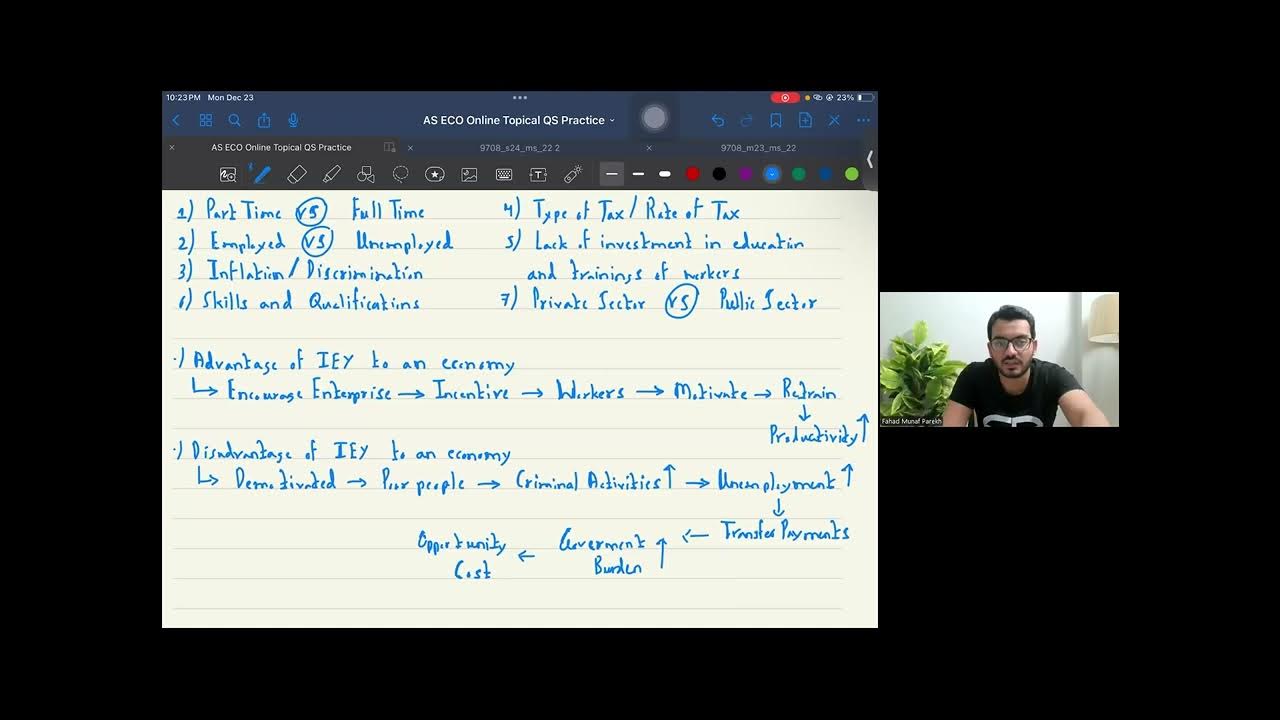 10:23 PM Mon Dec 23
23%
AS ECO Online Topical QS Practice
AS ECO Online Topical QS Practice
9708_s24_ms_22 2
9708_m23_ms_22
1) Part Time VS Full Time
2) Employed VS Unemployed
3) Inflation / Discrimination
6) Skills and Qualifications
4) Type of Tax / Rate of Tax
5) Lack of investment in education
and trainings of workers
7) Private Sector VS Public Sector
·) Advantage of IEY to an economy
↳ Encourage Enterprise → Incentive → Workers → Motivate → Retrain
↓
Productivity ↑
·) Disadvantage of IEY to an economy
↳ Demotivated → Poor people → Criminal Activities ↑ → Unemployment ↑
↓
Opportunity Cost ← Goverment Burden ↑ ← Transfer Payments
Fahad Munaf Parekh